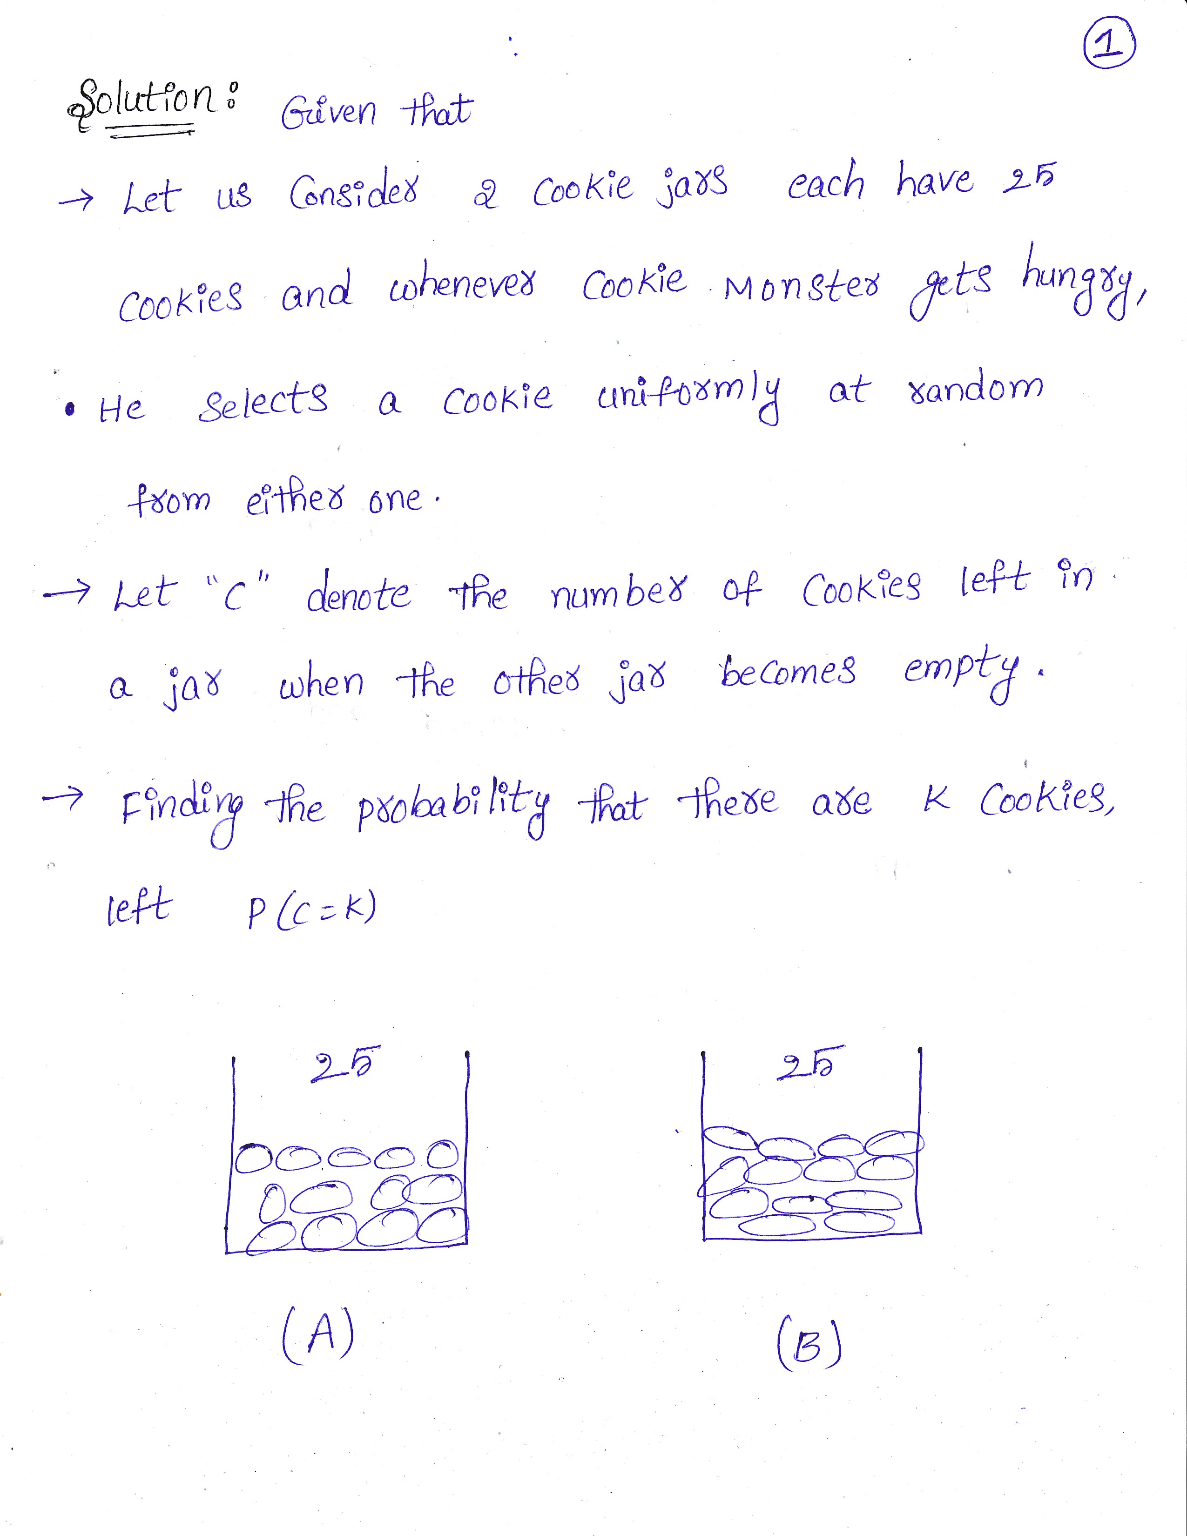 1
Solution: Given that
→ Let us Consider 2 Cookie jars each have 25
Cookies and whenever Cookie Monster gets hungry,
• He Selects a Cookie uniformly at random
from either one.
→ Let "C" denote the number of Cookies left in
a jar when the other jar becomes empty.
→ Finding the probability that there are K Cookies,
left P(C=K)
25 25
(A) (B)